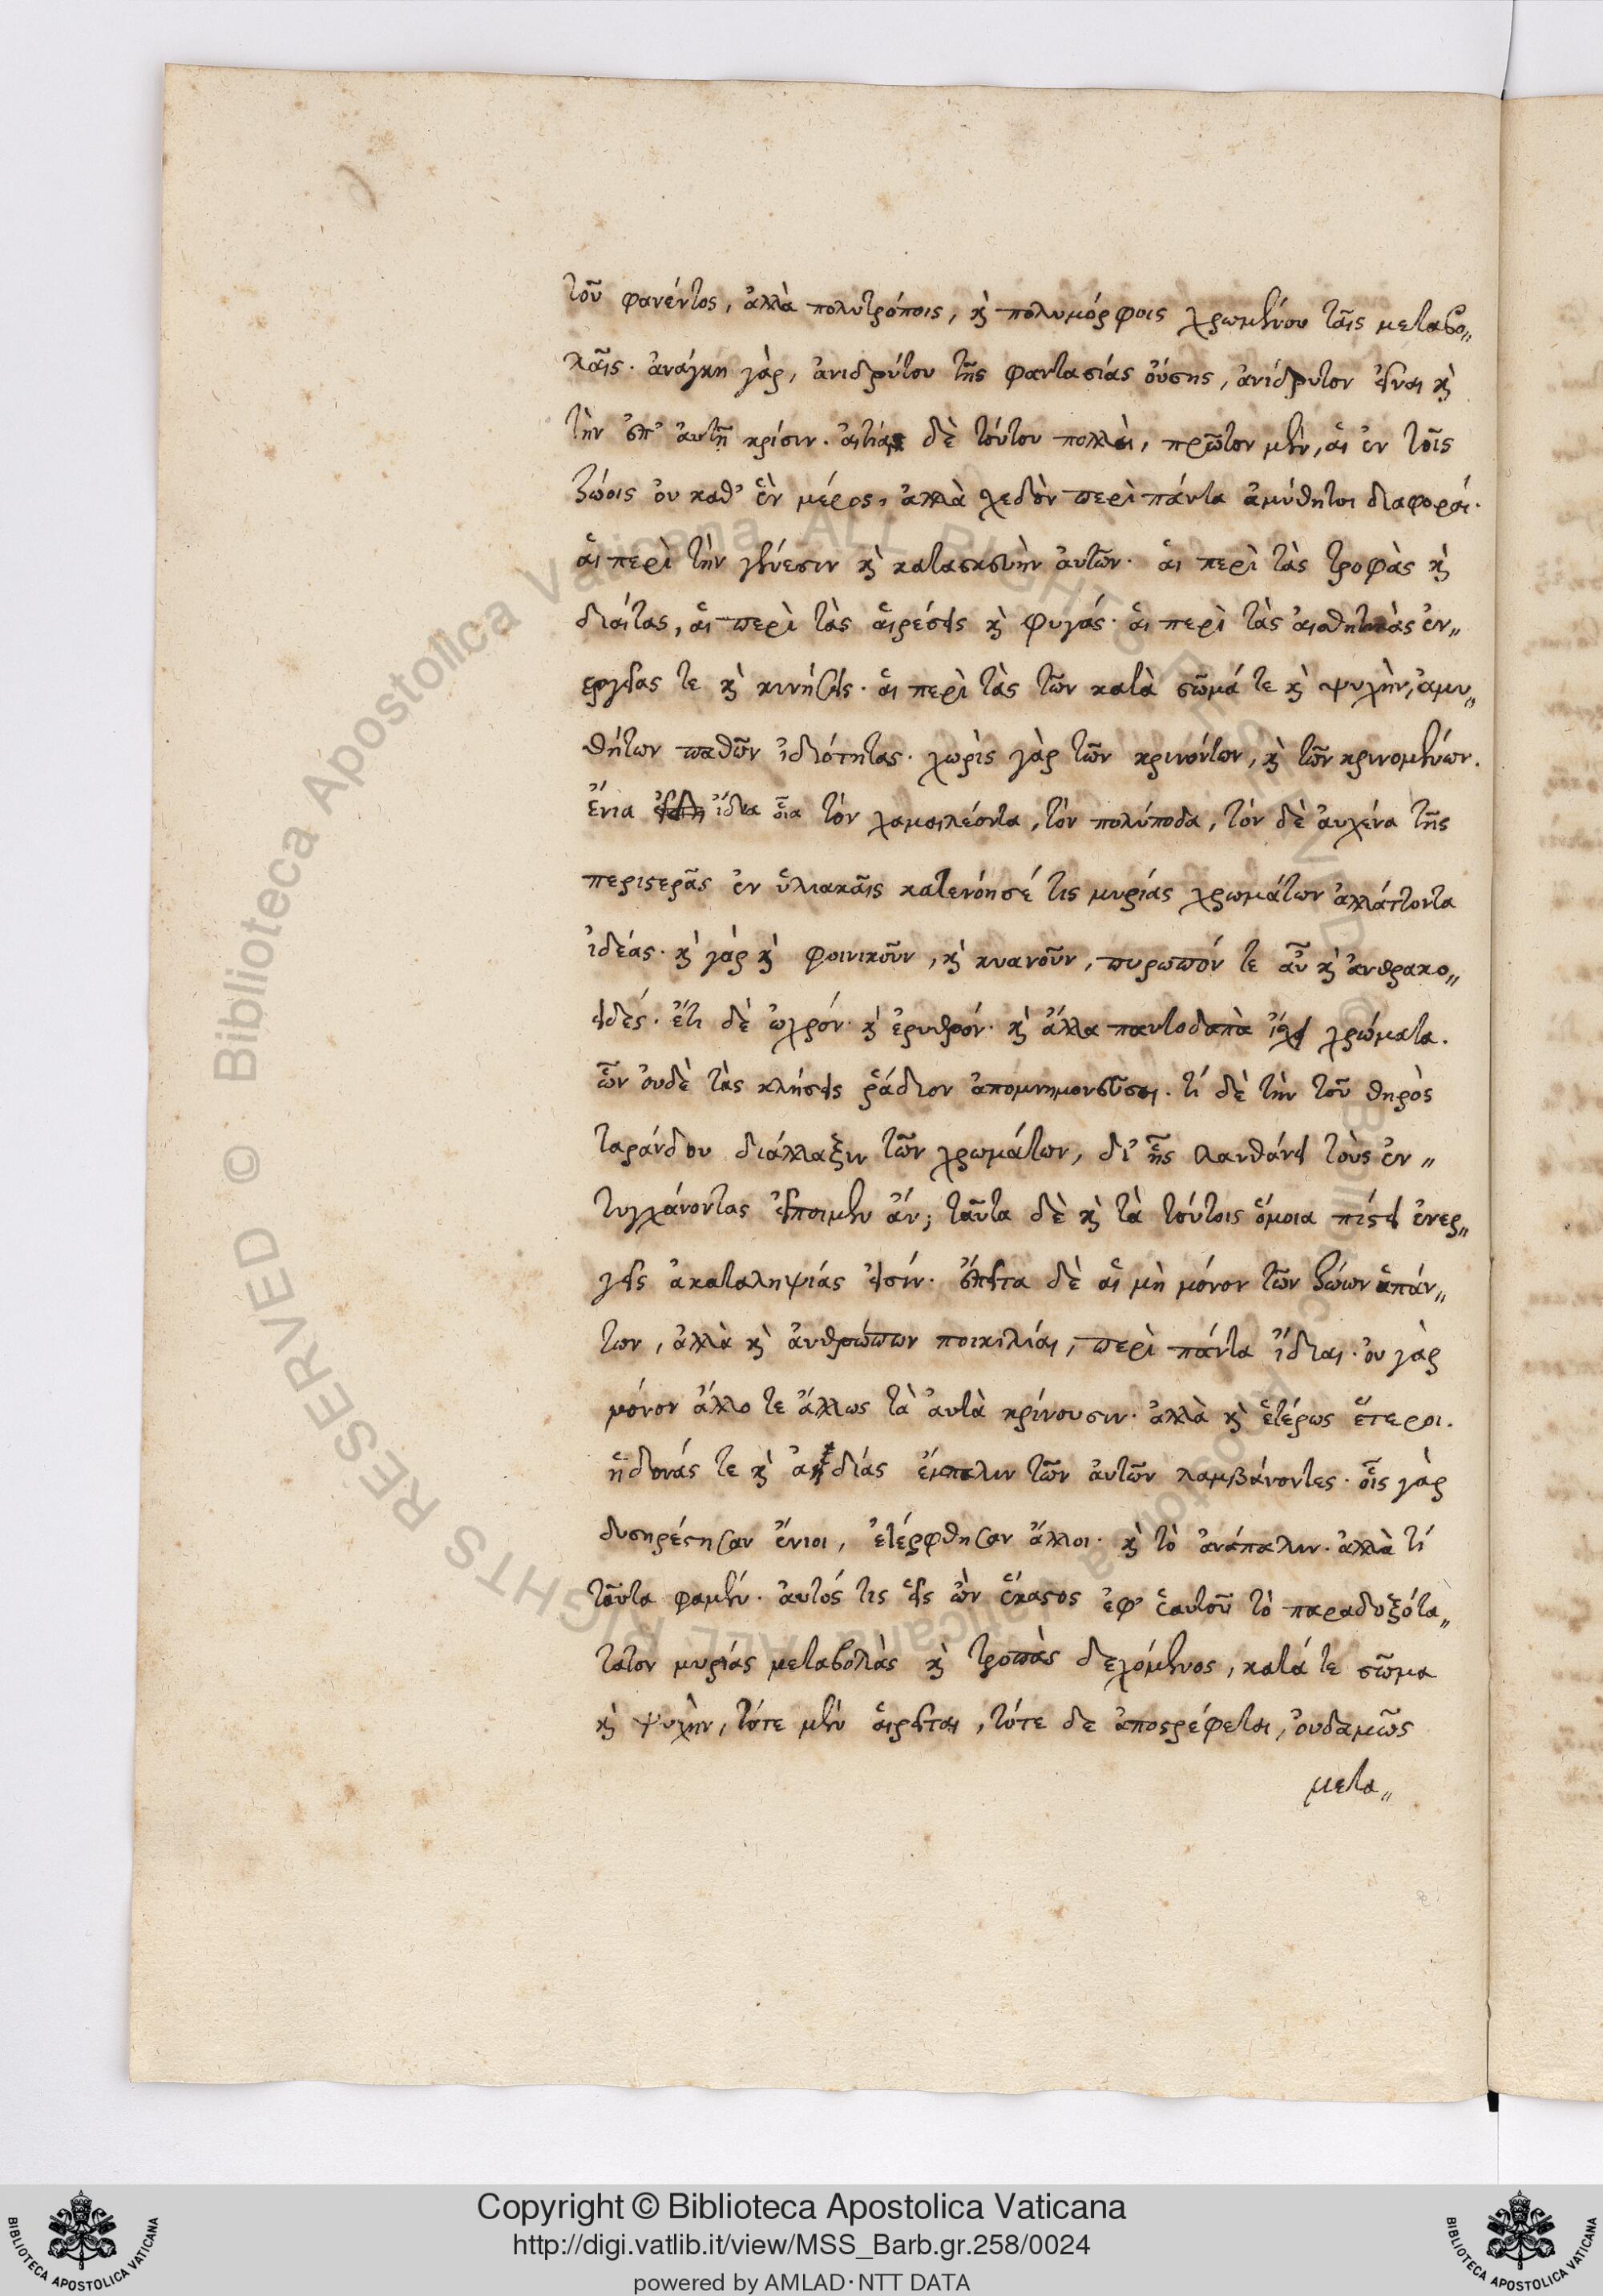 τοῦ φανέντος, ἀλλὰ πολυτρόποις, κὶ πολυμόρφοις χρωμένου ταῖς μεταβο„
λαῖς. ἀνάγκη γὰρ, ἀνιδρύτου τῆς φαντασίας οὔσης, ἀνίδρυτον εἶναι κὶ
τὴν ἐπ' αὐτῇ κρίσιν. αἰτίαι δὲ τούτου πολλαὶ, πρῶτον μὲν, αἱ ἐν τοῖς
ζώοις οὐ καθ' ἓν μέρος, ἀλλὰ σχεδὸν περὶ πάντα ἀμύθητοι διαφοραί.
αἱ περὶ τὴν γένεσιν κὶ κατασκευὴν αὐτῶν. αἱ περὶ τὰς τροφὰς κὶ
διαίτας, αἱ περὶ τὰς αἱρέσεις κὶ φυγάς. αἱ περὶ τὰς αἰσθητικὰς ἐν„
εργείας τε κὶ κινήσεις. αἱ περὶ τὰς τῶν κατὰ σῶμά τε κὶ ψυχὴν, ἀμυ„
θήτων παθῶν ἰδιότητας. χωρὶς γὰρ τῶν κρινόντων, κὶ τῶν κρινομένων.
ἔνια ἴδια οἷα τὸν χαμαιλέοντα, τὸν πολύποδα, τὸν δὲ αὐχένα τῆς
περιστερᾶς ἐν ἡλιακαῖς κατενόησέ τις μυρίας χρωμάτων ἀλλάττοντα
ἰδέας. κὶ γὰρ κὶ φοινικοῦν, κὶ κυανοῦν, πυρωπόν τε αὖ κὶ ἀνθρακο„
ειδές. ἔτι δὲ ὠχρόν. κὶ ἐρυθρόν. κὶ ἄλλα παντοδαπὰ ἴσχει χρώματα.
ὧν οὐδὲ τὰς κλήσεις ῥάδιον ἀπομνημονεῦσαι. τί δὲ τὴν τοῦ θηρὸς
ταράνδου διάλλαξιν τῶν χρωμάτων, δι' ἧς λανθάνει τοὺς ἐν„
τυγχάνοντας εἴποιμεν ἄν; ταῦτα δὲ κὶ τὰ τούτοις ὅμοια πίστει ἐνερ„
γεῖς ἀκαταληψίας εἰσίν. ἔπειτα δὲ αἱ μὴ μόνον τῶν ζώων ἁπάν„
των, ἀλλὰ κὶ ἀνθρώπων ποικιλίαι, περὶ πάντα ἴδιαι. οὐ γὰρ
μόνον ἄλλο τε ἄλλως τὰ αὐτὰ κρίνουσιν. ἀλλὰ κὶ ἑτέρως ἕτεροι.
ἡδονάς τε κὶ ἀηδίας ἔμπαλιν τῶν αὐτῶν λαμβάνοντες. οἷς γὰρ
δυσηρέστησαν ἔνιοι, ἐτέρφθησαν ἄλλοι. κὶ τὸ ἀνάπαλιν. ἀλλὰ τί
ταῦτα φαμέν. αὐτός τις εἷς ὢν ἕκαστος ἐφ' ἑαυτοῦ τὸ παραδοξότα„
τατον μυρίας μεταβολὰς κὶ τροπὰς δεχόμενος, κατά τε σῶμα
κὶ ψυχὴν, τότε μὲν αἱρεῖται, τότε δε ἀποστρέφεται, οὐδαμῶς
μετα„
Copyright © Biblioteca Apostolica Vaticana
http://digi.vatlib.it/view/MSS_Barb.gr.258/0024
powered by AMLAD·NTT DATA
BIBLIOTECA APOSTOLICA VATICANA
BIBLIOTECA APOSTOLICA VATICANA
Biblioteca Apostolica Vaticana ALL RIGHTS RESERVED ©
Biblioteca Apostolica Vaticana ALL RIGHTS RESERVED ©